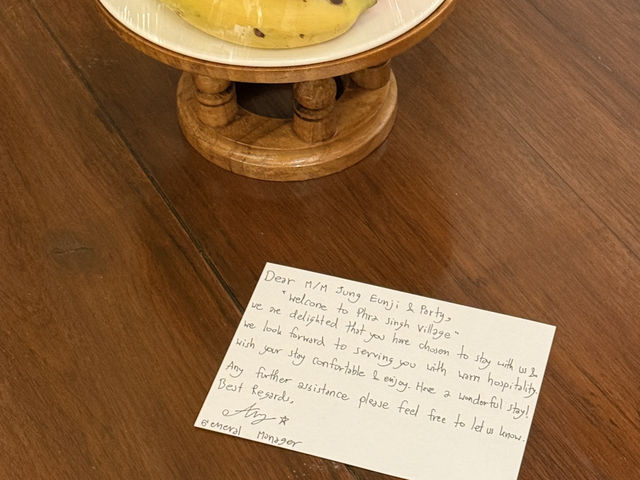 Dear M/M Jung Eunji & Party,
"Welcome to Phra Singh Village"
we are delighted that you have chosen to stay with us &
we look forward to serving you with warm hospitality.
wish your stay comfortable & enjoy. Have a wonderful stay!
Any further assistance please feel free to let us know.
Best Regards,
General Manager